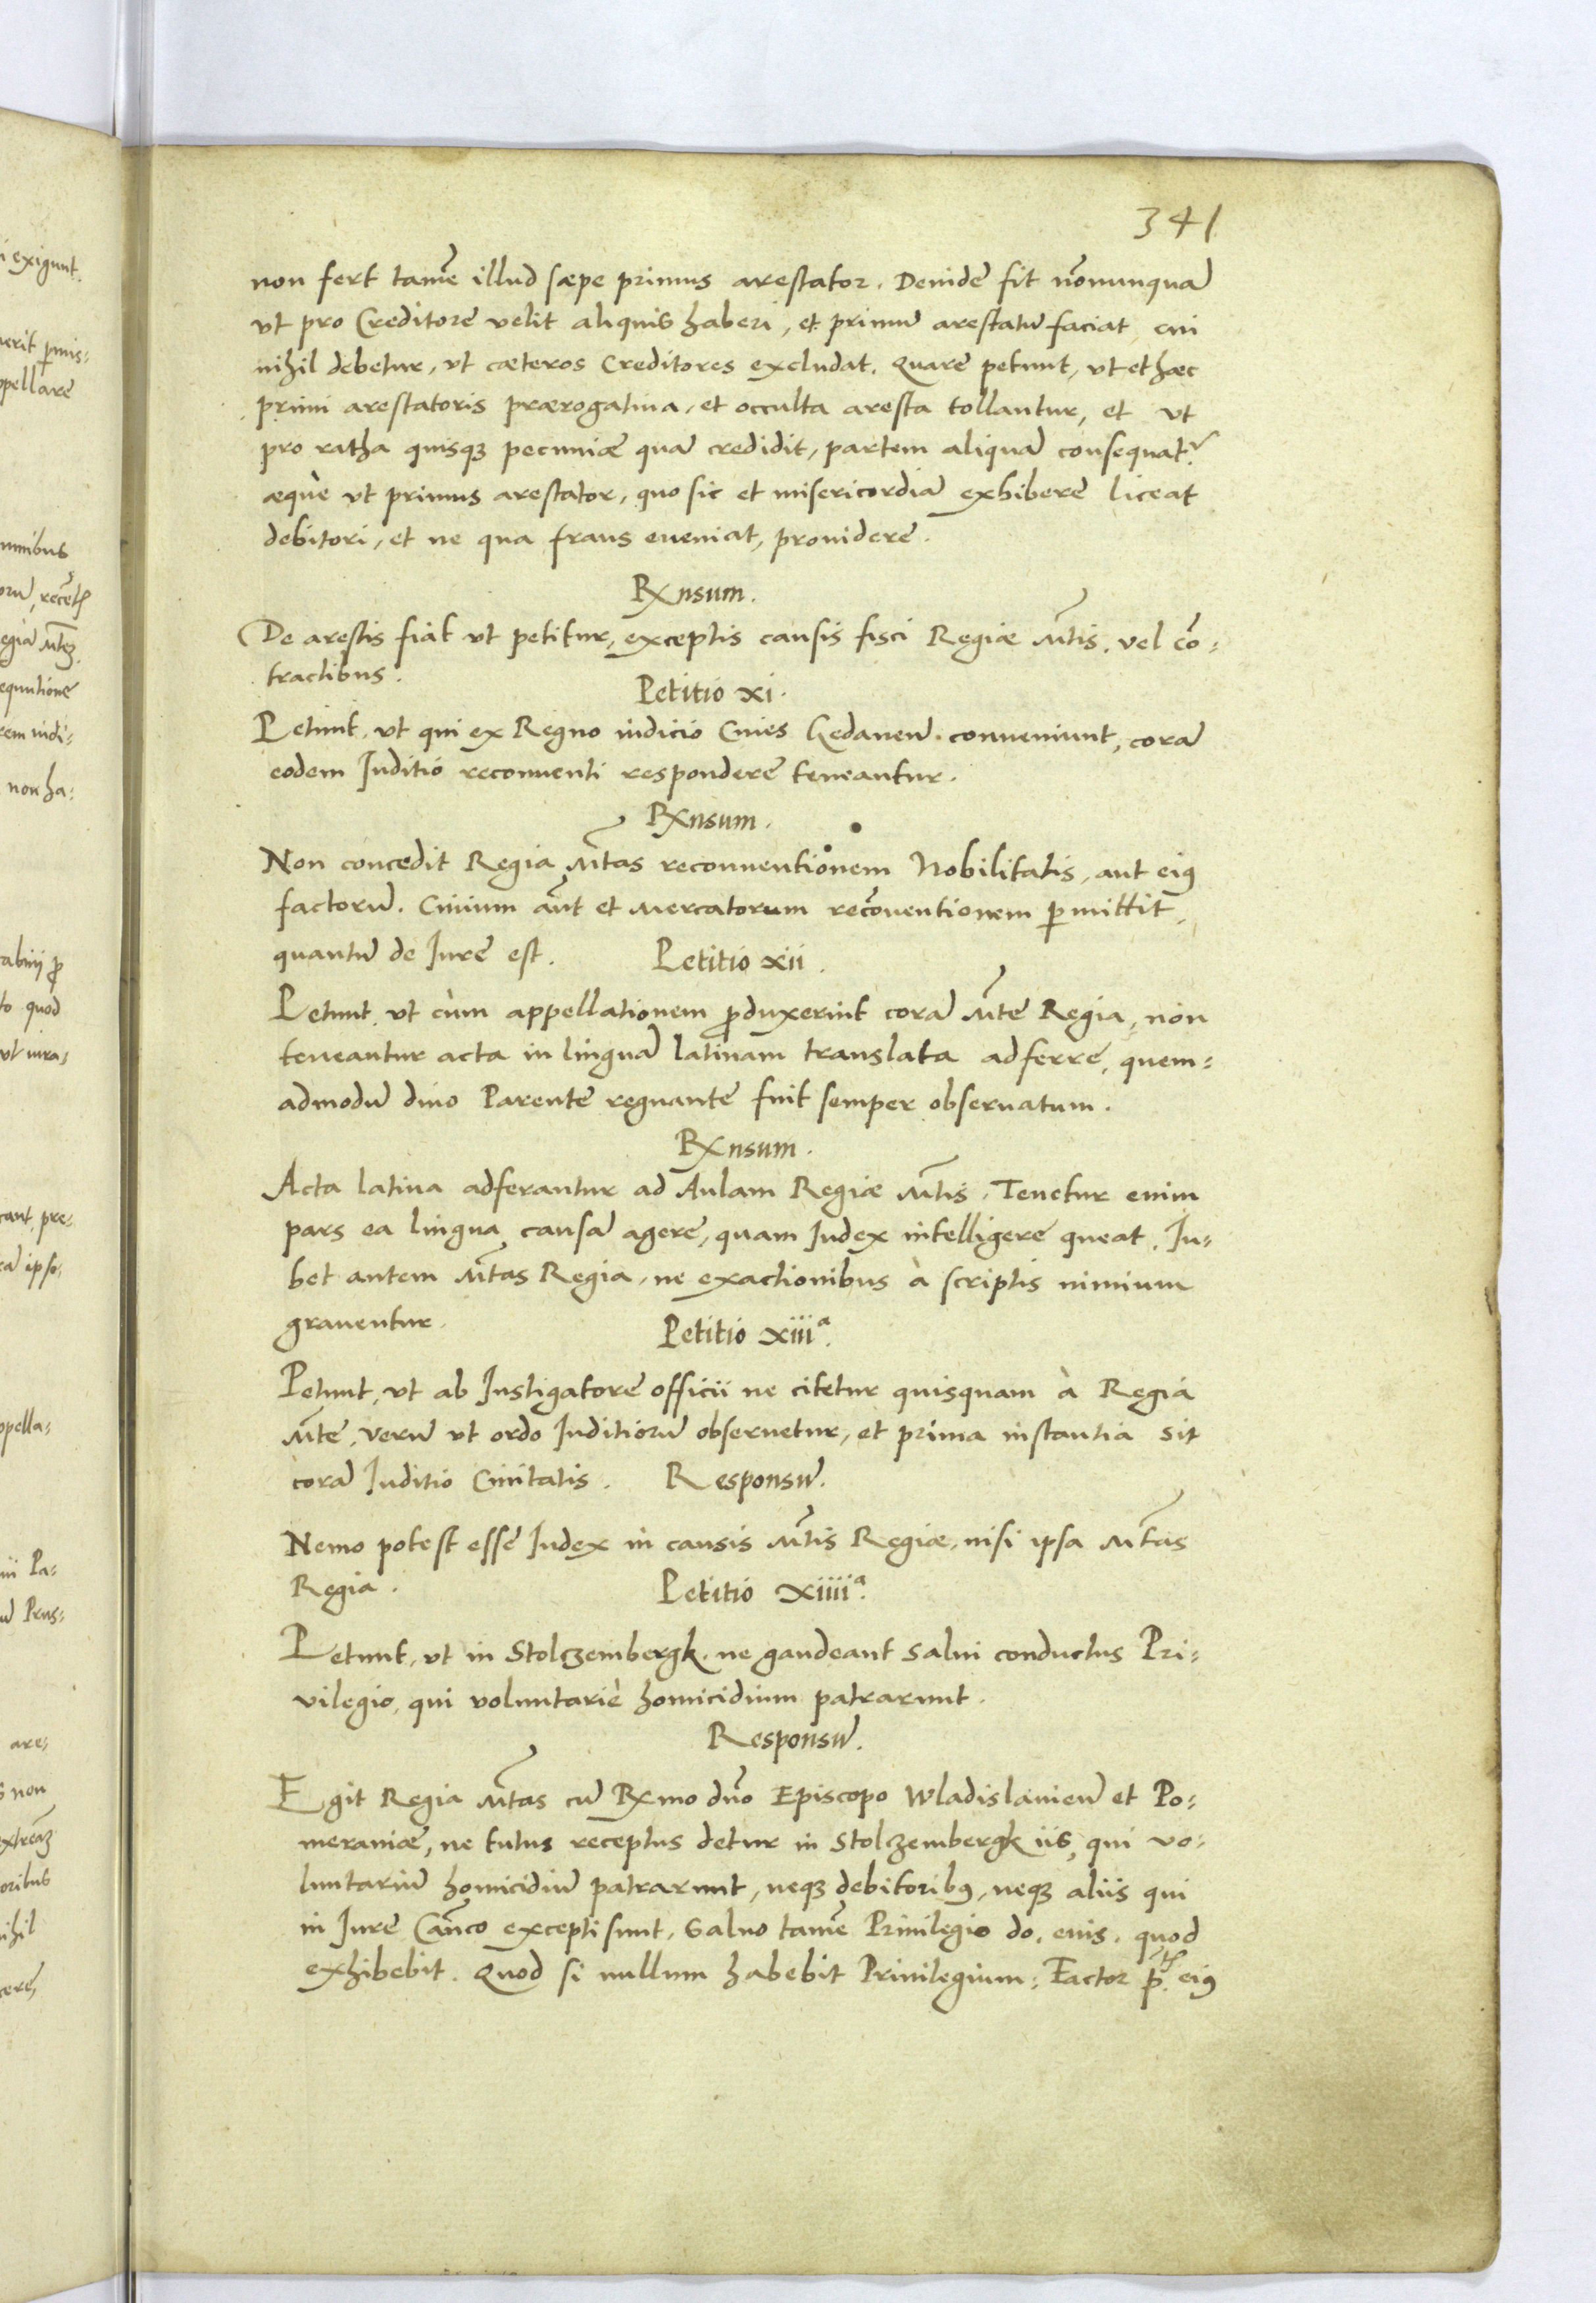 341
non fert tamē illud sæpe primus arestator. Deniđe fit nōnunquā
vt pro Creditore velit aliquis haberi, et primū arestatū faciat, cui
nihil debetur, vt cæteros Creditores excludat. Quare petunt, vt et hæc
primi arestatoris prærogatiua, et occulta aresta tollantur, et vt
pro ratha quisqꝫ pecuniæ quā credidit, partem aliquā consequatr
æque vt primus arestator, quo sic et misericordiā exhibere liceat
debitori, et ne qua fraus eueniat, prouidere.
Rxnsum.
De arestis fiat vt petitur, exceptis causis fisci Regiæ Mtis. vel cō-
tractibus.
Petitio xi.
Petunt, vt qui ex Regno iudicio Ciues Gedaneñ. conueniunt, corā
eodem Juditio reconuenti respondere teneantur.
Rxnsum.
Non concedit Regia Mtas reconuentionem Nobilitatis, aut eiꝰ
factorū. Ciuium aūt et Mercatorum recōuentionem ꝑmittit,
quantū de Jure est.
Petitio xii.
Petunt, vt cùm appellationem ꝓduxerint corā Mte Regia, non
teneantur acta in linguā latinam translata adferre, quem-
admodū diuo Parente regnante fuit semper obseruatum.
Rxnsum.
Acta latina adferantur ad Aulam Regiæ Mtis. Tenetur enim
pars ea lingua causā agere, quam Judex intelligere queat. Ju-
bet autem Mtas Regia, ne exactionibus à scriptis nimium
grauentur.
Petitio xiiia.
Petunt, vt ab Instigatore officii ne citetur quisquam à Regia
Mte, verū vt ordo Juditiorū obseruetur, et prima instantia sit
corā Juditio Ciuitatis.
Responsū.
Nemo potest esse Judex in causis Mtis Regiæ, nisi ipsa Mtas
Regia.
Petitio xiiiia.
Petunt, vt in Stolczembergk. ne gaudeant salui conductus Pri-
vilegio, qui voluntariè homicidium patrarunt.
Responsū.
Egit Regia Mtas cū Rxmo dño Episcopo Wladislauieñ et Po-
meraniæ, ne tutus receptus detur in Stolczembergk iis, qui vo-
luntariū homicidiū patrarunt, neqꝫ debitoribꝰ, neqꝫ aliis qui
in Jure Canco excepti sunt, Saluo tamē Priuilegio do. euis. quod
exhibebit. Quod si nullum habebit Priuilegium: Factor eiꝰ